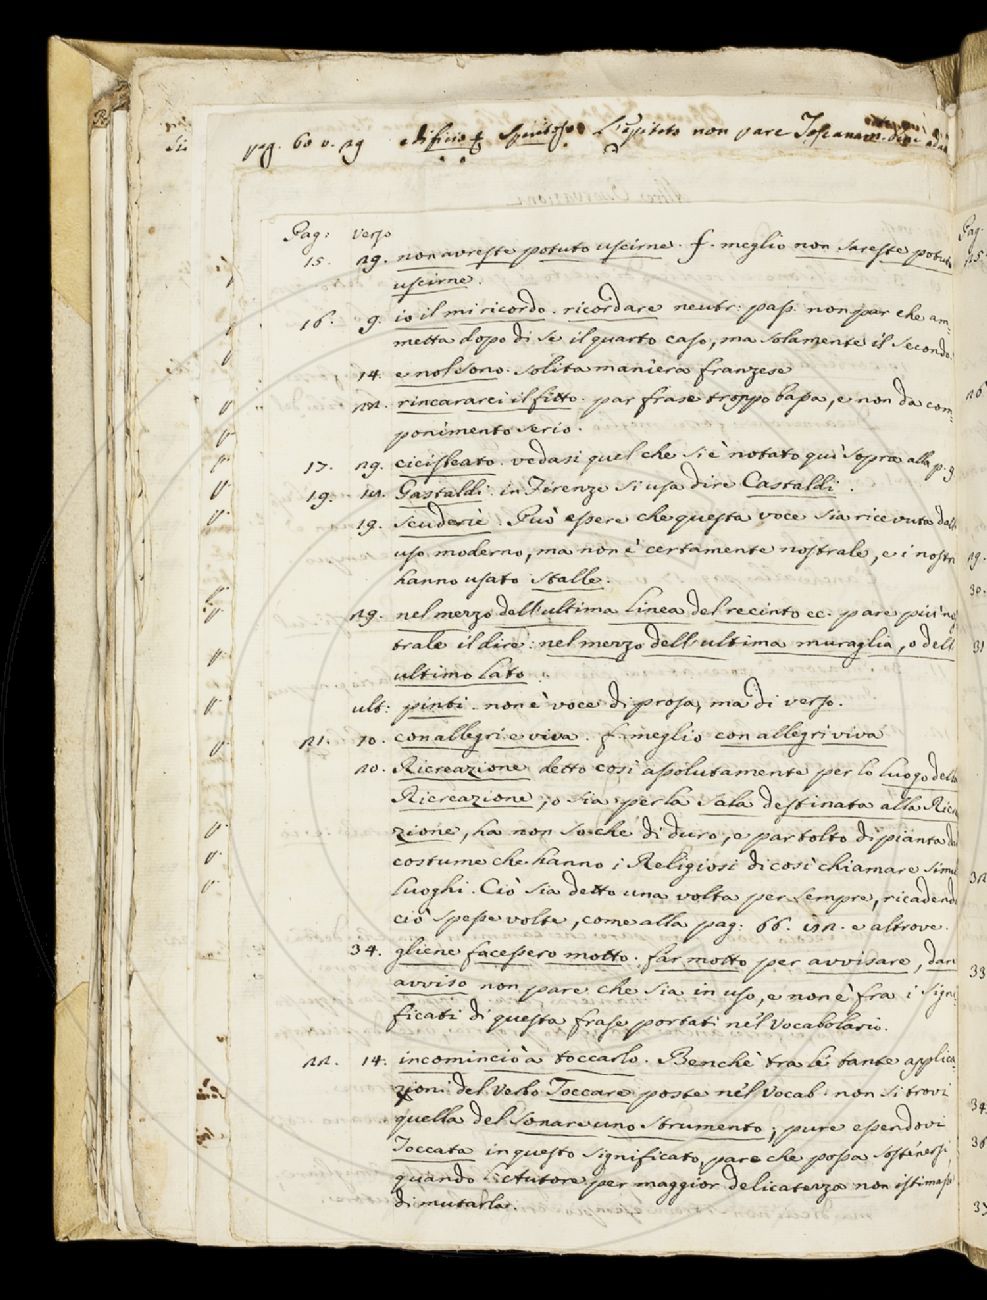 pag. 60 v. 29 edificio f Spiritoso L'epiteto non pare
Pag: verso
15. 29. non avreste potuto uscirne. f. meglio non sareste potuto
uscirne.
16. 9. io il mi ricordo. ricordare neutr: pass. non par che am-
metta dopo di se il quarto caso, ma solamente il secondo
14. e nol sono. solita maniera franzese
22. rincararci il fitto. par frase troppo bassa, e non da com-
ponimento serio.
17. 29. cicisbeato. vedasi quel che si è notato quì sopra alla p. 9
19. 12. Gastaldi. in Firenze si usa dire Castaldi.
19. scuderie. Può essere che questa voce sia ricevuta dall'
uso moderno, ma non è certamente nostrale, e i nostri
hanno usato stalle.
29. nel mezzo dell'ultima linea del recinto ec. pare più na
trale il dire: nel mezzo dell'ultima muraglia, o dell'
ultimo lato.
ult: pinti. non è voce di prosa, ma di verso.
21. 10. con allegri e viva. f. meglio con allegri viva
20. Ricreazione detto così assolutamente per lo luogo della
Ricreazione, o sia per la sala destinata alla Ricrea
zione, ha non so che di duro, e par tolto di pianta dal
costume che hanno i Religiosi di così chiamare simil
luoghi. Ciò sia detto una volta per sempre, ricadendo
ciò spesse volte, come alla pag: 66. v. 12. e altrove.
34. gliene facessero motto. far motto per avvisare, dar
avviso non pare che sia in uso, e non è fra i signi-
ficati di questa frase portati nel Vocabolario.
22. 14. incominciò a toccarlo. Benchè tra le tante applica-
zioni del verbo Toccare poste nel Vocab. non si trovi
quella del sonare uno strumento, pure essendovi
Toccata in questo significato, pare che possa sostenersi
quando l'Autore per maggior delicatezza non istimasse
di mutarla.